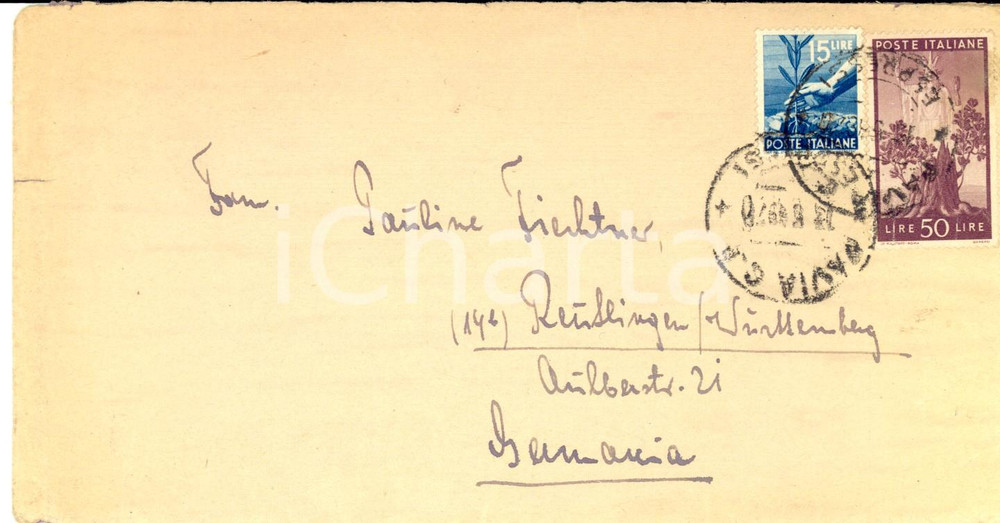 15 LIRE
POSTE ITALIANE
POSTE ITALIANE
LIRE 50 LIRE
PAVIA C.P.
iCharta
Fam. Pauline Fiechtner,
(14b) Reutlingen/Württemberg
Aulberstr. 21
Germania